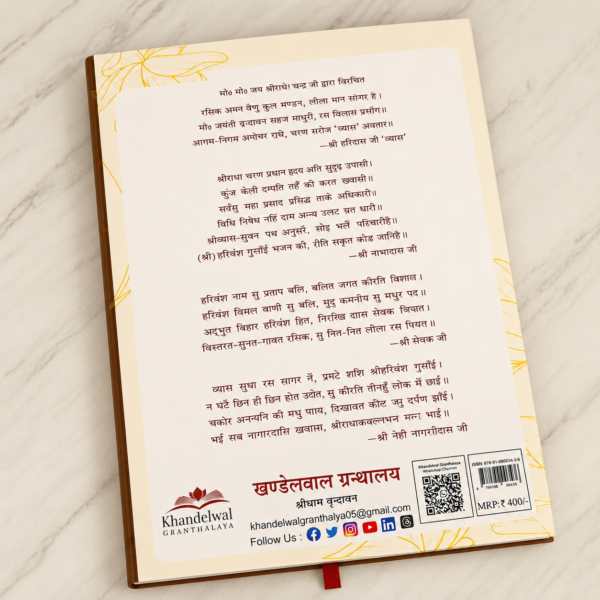 मो० मो० जय श्रीराधे! चन्द्र जी द्वारा विरचित
रसिक अमन वैणु कुल मण्डन, लीला मान सागर हे ।
मो० जयंती वृन्दावन सहज माधुरी, रस विलास प्रसोंग॥
आगम-निगम अमोचर राधे, चरण सरोज ‘व्यास’ अवतार॥
—श्री हरिदास जी ‘व्यास’
श्रीराधा चरण प्रधान हृदय अति सुदृढ़ उपासी।
कुंज केली दम्पति तहँ की करत खवासी॥
सर्वसु महा प्रसाद प्रसिद्ध ताके अधिकारी॥
विधि निषेध नहिं दाम अन्य उलट व्रत धारी॥
श्रीव्यास-सुवन पथ अनुसरै, सोइ भलैं परिचारीहै॥
(श्री) हरिवंश गुसाँई भजन की, रीति सकृत कोड जानिहै॥
—श्री नाभादास जी
हरिवंश नाम सु प्रताप बलि, बलित जगत कीरति विशाल।
हरिवंश विमल वाणी सु बलि, मुदु कमनीय सु मधुर पद॥
अद्भुत बिहार हरिवंश हित, निरखि दास सेवक जियात।
विस्तरत-सुनत-गावत रसिक, सु नित-नित लीला रस पियत॥
—श्री सेवक जी
व्यास सुधा रस सागर नें, प्रमटे शशि श्रीहरिवंश गुसाँई।
न घटै छिन ही छिन होत उदोत, सु कीरति तीनहुँ लोक में छाई॥
चकोर अनन्यनि की मधु पाय, दिखावत कीट ज्मु दर्पण झाँई।
भई सब नागारदासि खवास, श्रीराधाकवल्लभज मन्न भाई॥
—श्री नेही नागरीदास जी
खण्डेलवाल ग्रन्थालय
श्रीधाम वृन्दावन
khandelwalgranthalya05@gmail.com
Follow Us :
Khandelwal
GRANTHALAYA
Khandelwal Granthalaya
WhatsApp Channel
MRP:₹ 400/-